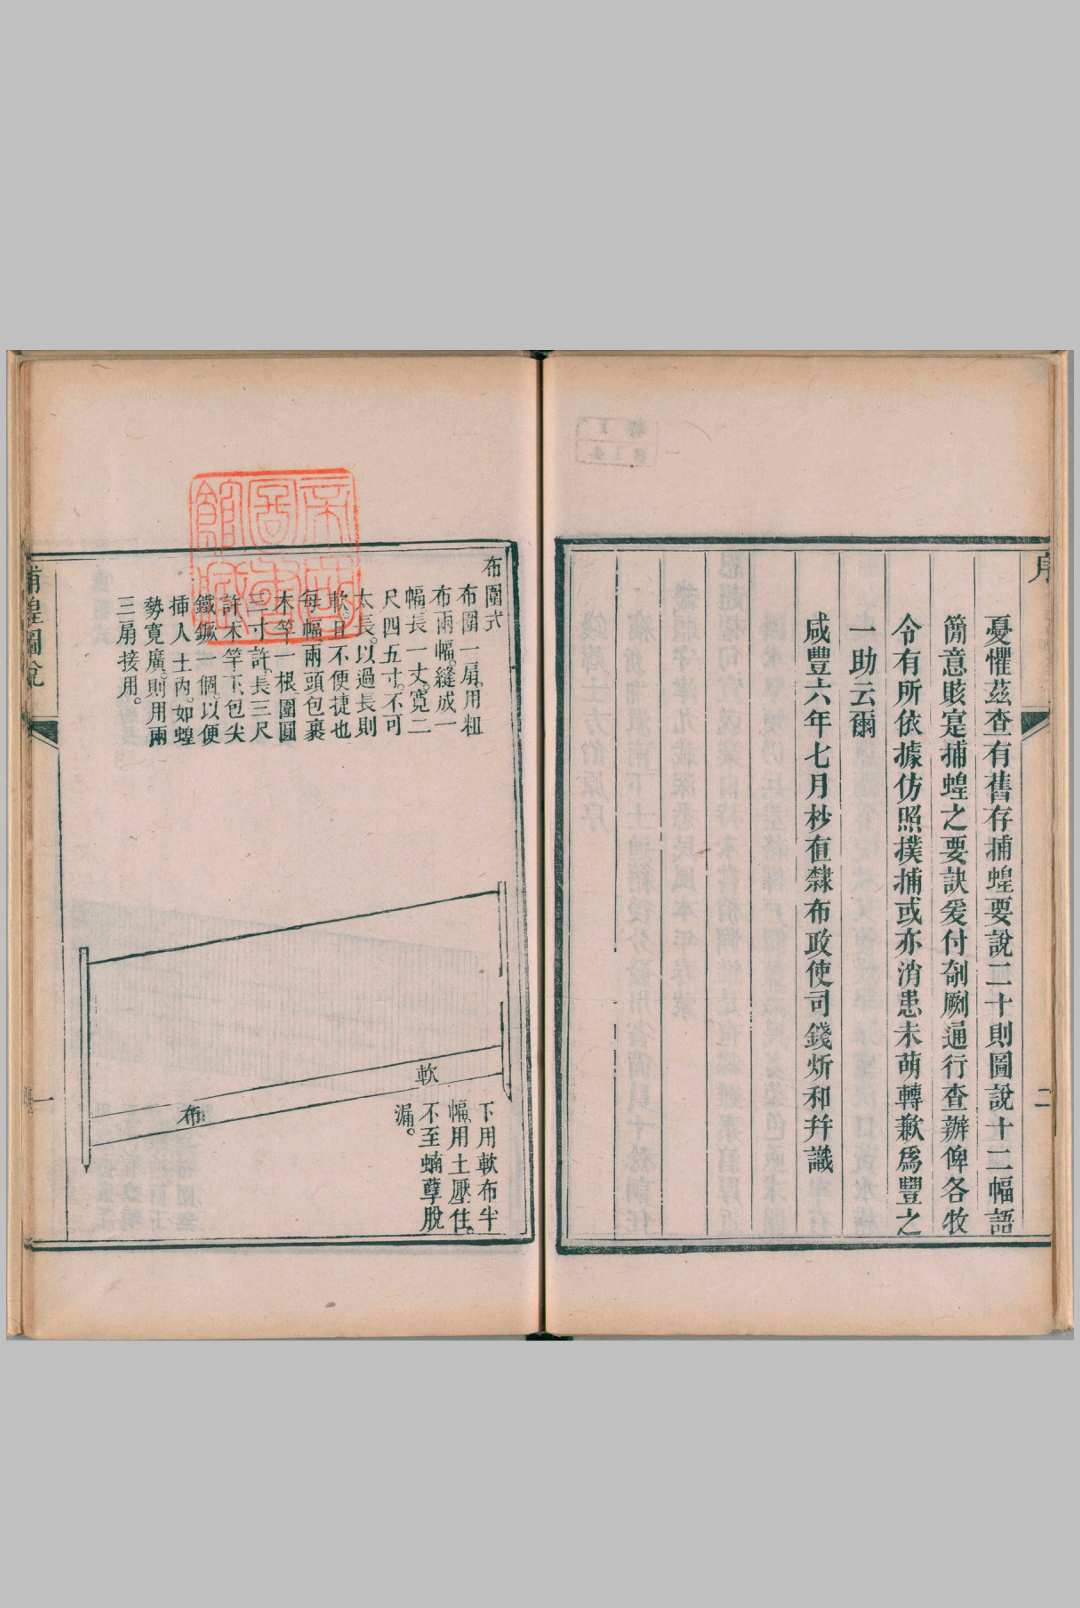 憂懼茲查有舊存捕蝗要說二十則圖說十二幅語
簡意賅寔捕蝗之要訣爰付剞劂通行查辦俾各牧
令有所依據仿照撲捕或亦消患未萌轉歉爲豐之
一助云爾
咸豐六年七月杪直隸布政使司錢炘和幷識
二
布圍式
布圍一扇用粗
布兩幅縫成一
幅長一丈寬二
尺四五寸不可
太長。以過長則
軟且不便捷也
每幅兩頭包裹
木竿一根圍圓
三寸許長三尺
許木竿下包尖
鐵鑯一個以便
挿人土內如蝗
勢寬廣則用兩
三扇接用。
軟
布
下用軟布半
幅用土壓住。
不至蝻孽脫
漏。
捕蝗圖說
一
帝國圖書館藏